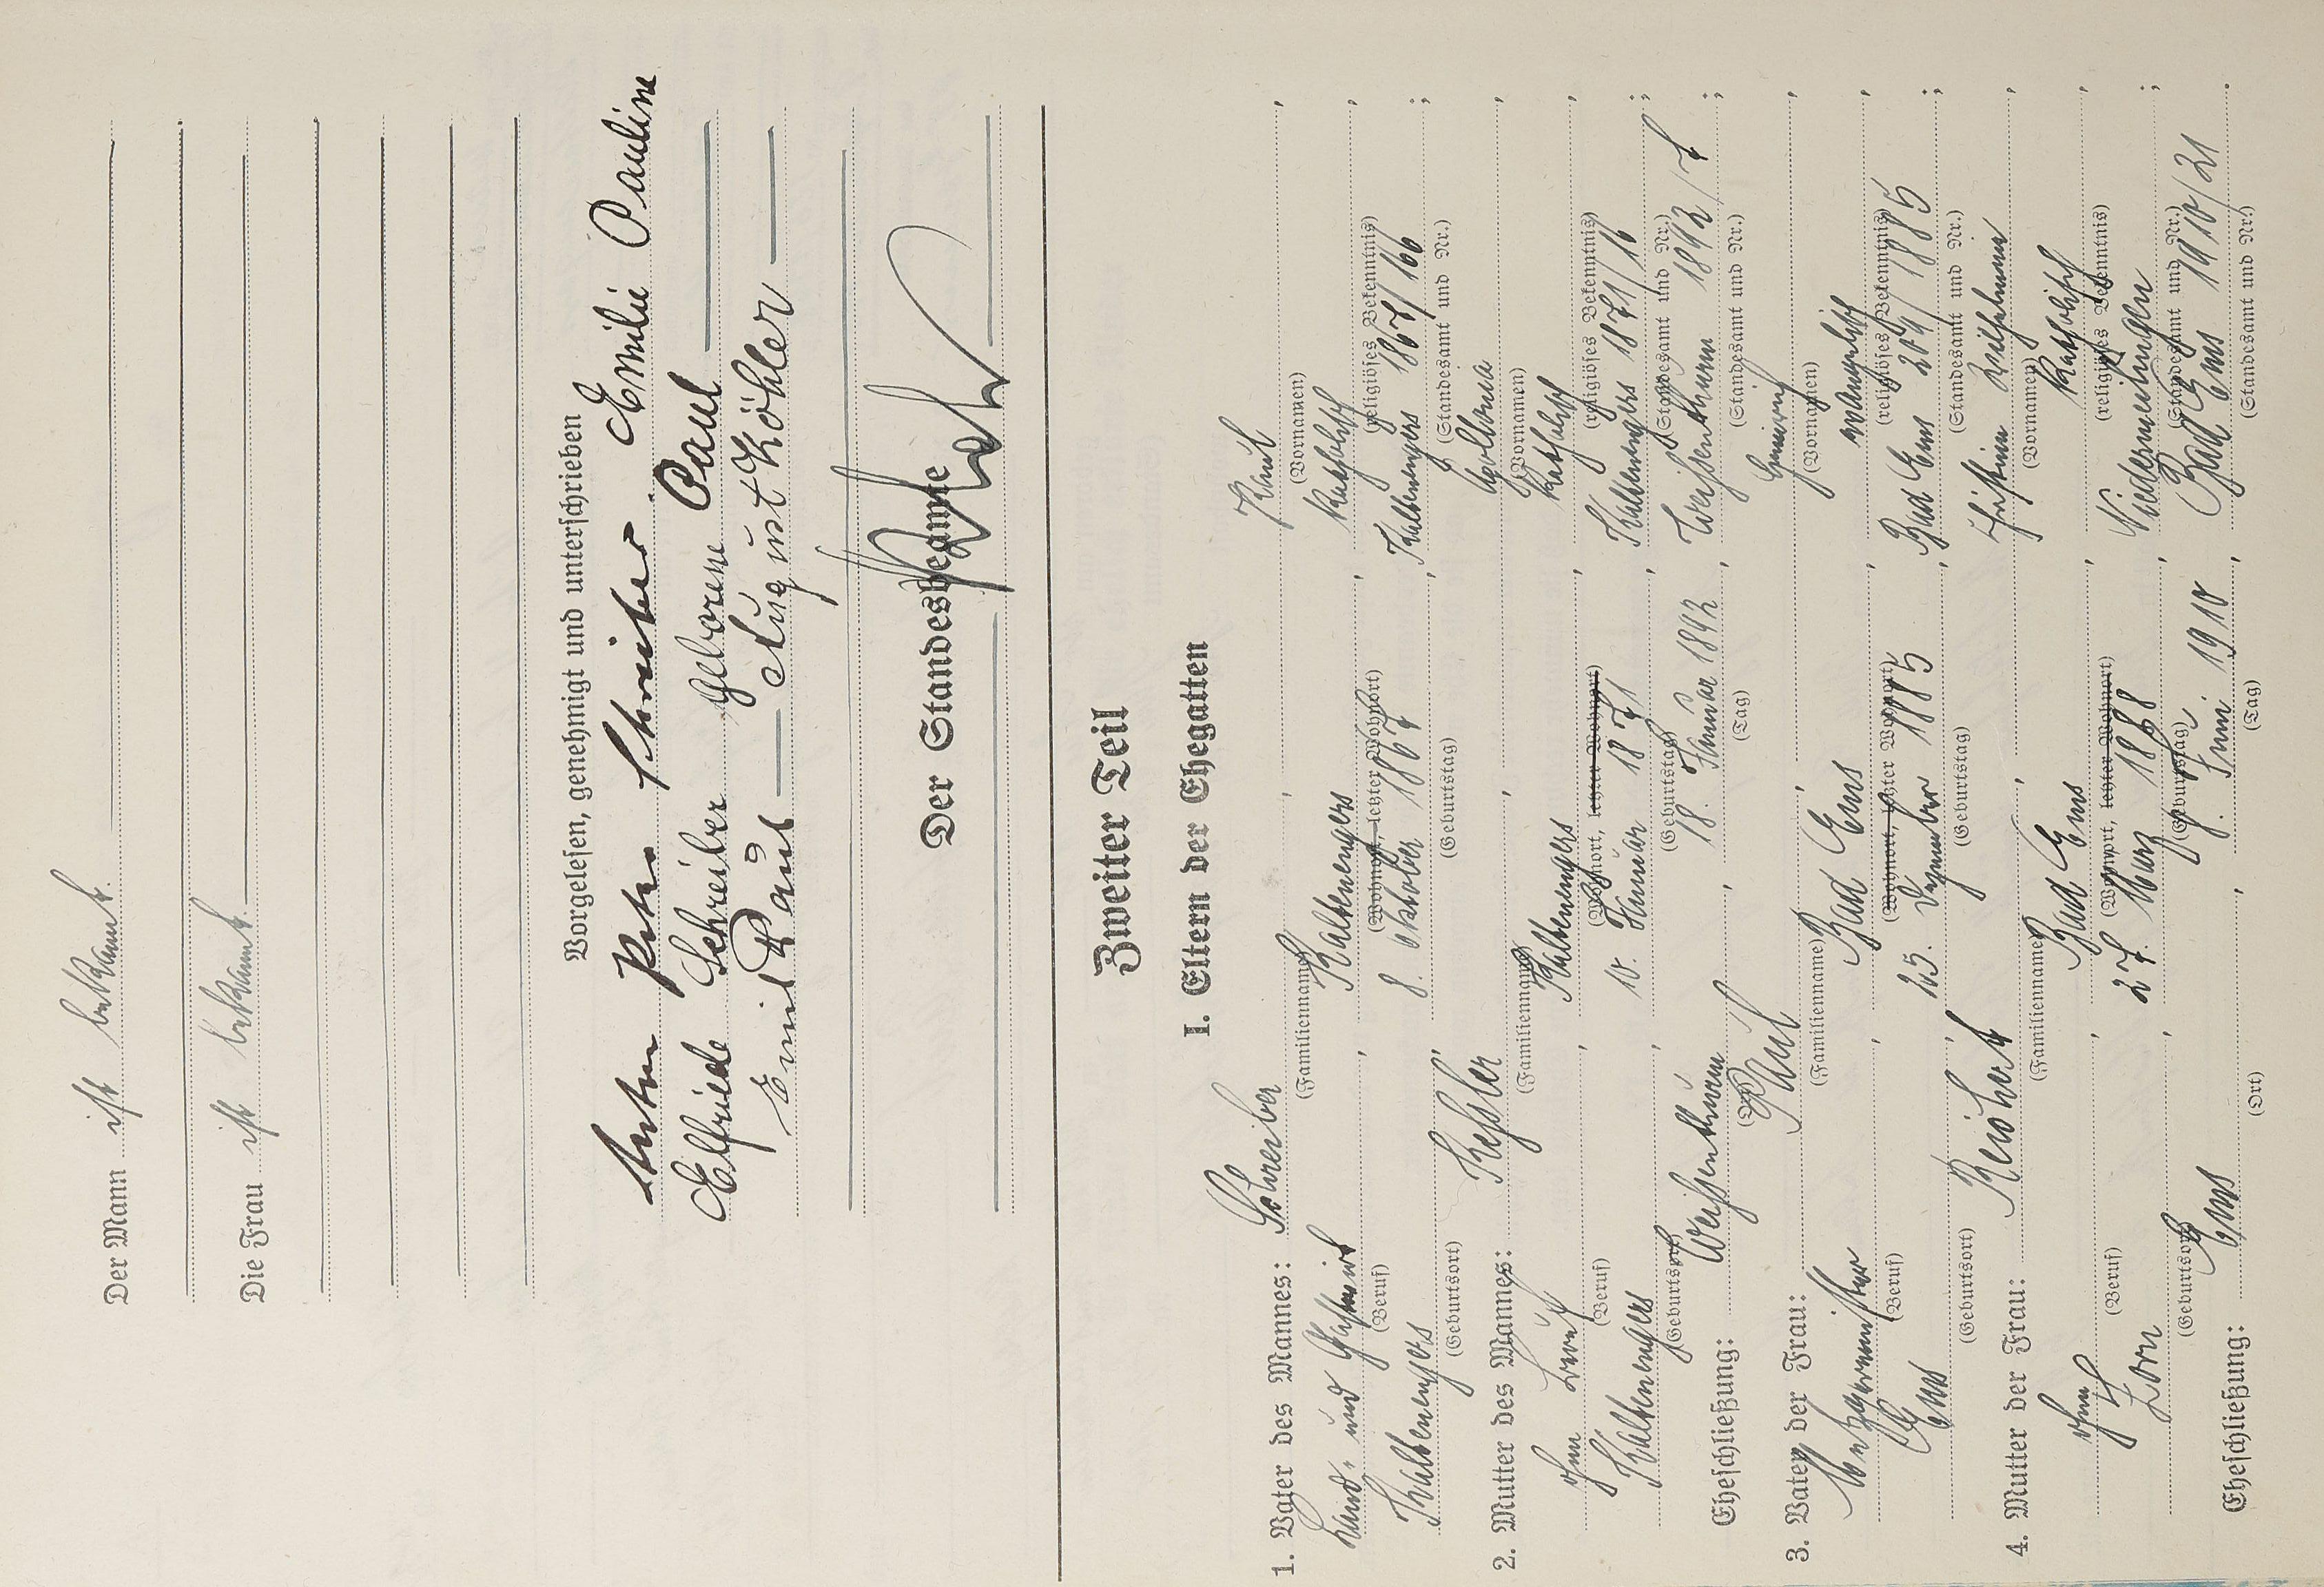 Der Mann ist bekannt.
Die Frau ist bekannt.
Vorgelesen, genehmigt und unterschrieben
Anton Peter Schreiber. Emilie Pauline
Elfriede Schreiber geborene Paul
Emil Paul — August Köhler —
Der Standesbeamte
Zweiter Teil
I. Eltern der Ehegatten
1. Vater des Mannes: Schreiber,
(Familienname) (Vornamen)
Land- und Gastwirt, Kaltenengers, katholisch,
(Beruf) (Wohnort, letzter Wohnort) (religiöses Bekenntnis)
Kaltenengers, 8. Oktober 1867, Kaltenengers 1867/166;
(Geburtsort) (Geburtstag) (Standesamt und Nr.)
2. Mutter des Mannes: Keßler, Apollonia,
(Familienname) (Vornamen)
ohne Beruf, Kaltenengers, katholisch,
(Beruf) (Wohnort, letzter Wohnort) (religiöses Bekenntnis)
Kaltenengers, 10. Januar 1871, Kaltenengers 1871/16;
(Geburtsort) (Geburtstag) (Standesamt und Nr.)
Eheschließung: Weißenthurm, 18. Januar 1892, Weißenthurm 1892/7;
(Ort) (Tag) (Standesamt und Nr.)
3. Vater der Frau: Paul, Heinrich,
(Familienname) (Vornamen)
Metzgermeister, Bad Ems, evangelisch,
(Beruf) (Wohnort, letzter Wohnort) (religiöses Bekenntnis)
Ems, 25. Dezember 1885, Bad Ems 204/1885;
(Geburtsort) (Geburtstag) (Standesamt und Nr.)
4. Mutter der Frau: Reichert, Christine Wilhelmine,
(Familienname) (Vornamen)
ohne, Bad Ems, katholisch,
(Beruf) (Wohnort, letzter Wohnort) (religiöses Bekenntnis)
Zorn, 27. März 1888,
(Geburtsort) (Geburtstag) (Standesamt und Nr.)
Eheschließung: Ems, Juni 1910, Bad Ems 1910/21.
(Ort) (Tag) (Standesamt und Nr.)